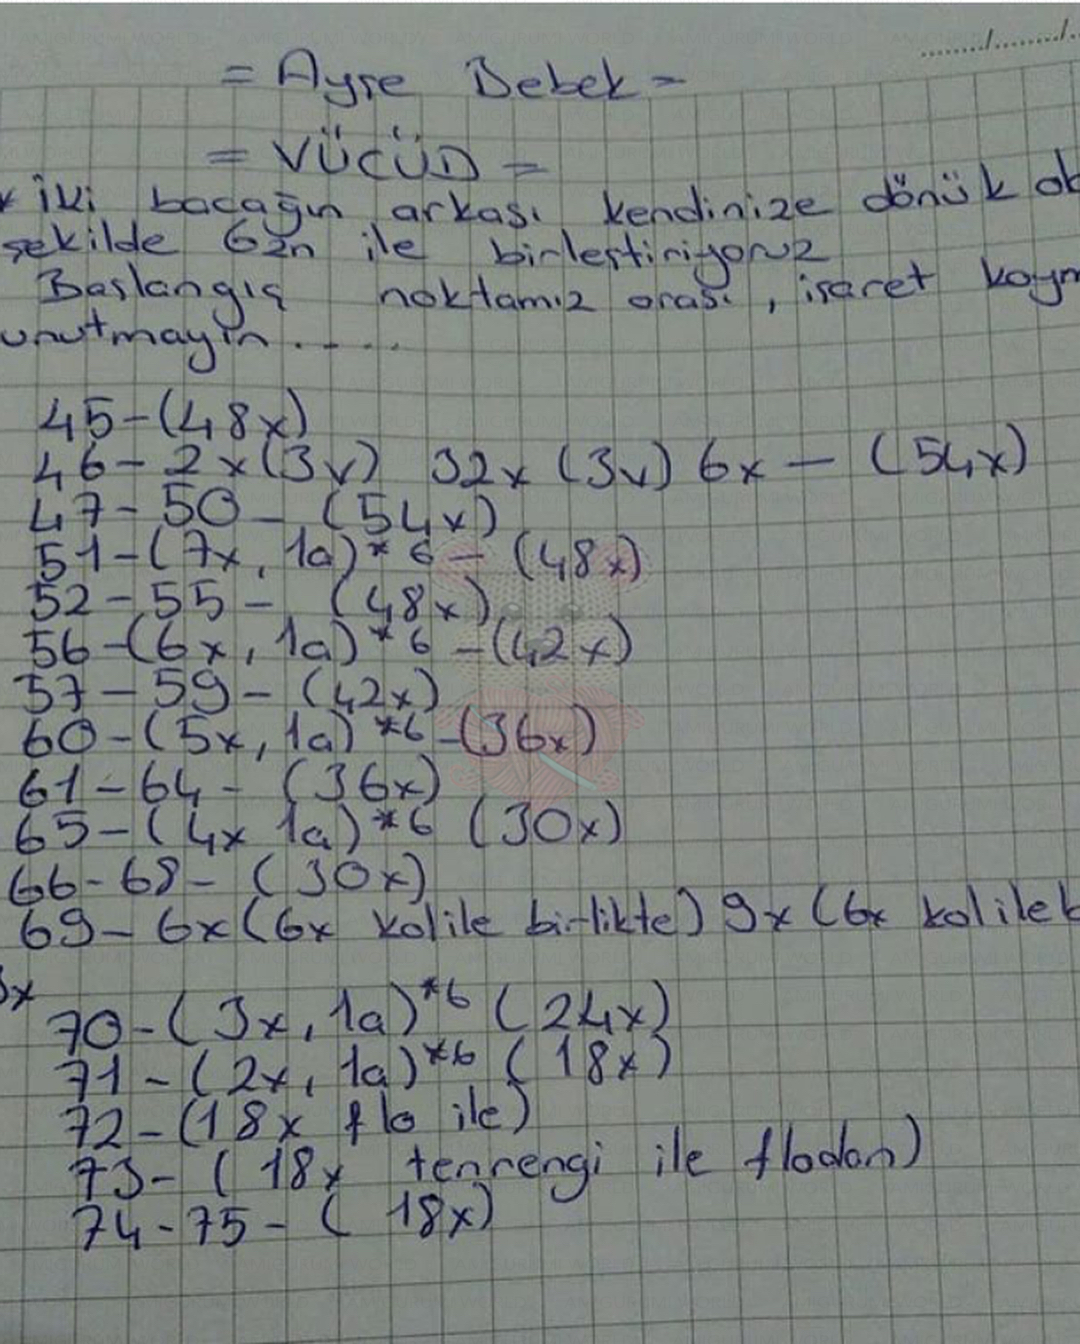 ......../......../..
= Ayşe Bebek =
= VÜCÜD =
* İki bacağın arkası kendinize dönük ola
şekilde 6zn ile birleştiriyoruz
Başlangıç noktamız orası, işaret koym
unutmayın .....
45-(48x)
46- 2x(3v) 32x (3v) 6x - (54x)
47-50- (54x)
51-(7x, 1a)*6- (48x)
52-55- (48x)
56-(6x, 1a)*6 -(42x)
57-59- (42x)
60-(5x, 1a)*6-(36x)
61-64- (36x)
65-(4x 1a)*6 (30x)
66-68- (30x)
69- 6x(6x kolile birlikte) 9x (6x kolile b
3x
70-(3x, 1a)*6 (24x)
71-(2x, 1a)*6 (18x)
72-(18x flo ile)
73- (18x tenrengi ile flodan)
74-75- (18x)